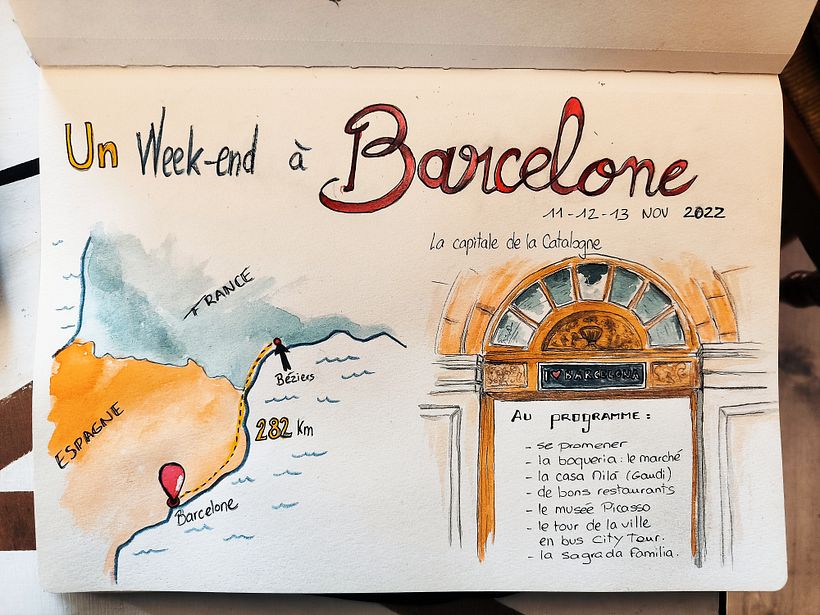 Un Week-end à Barcelone
11-12-13 NOV 2022
La capitale de la Catalogne
FRANCE
Béziers
ESPAGNE
282 Km
Barcelone
I ♥ BARCELONA
AU PROGRAMME :
- se promener
- la boqueria : le marché
- la casa Milà (Gaudi)
- de bons restaurants
- le musée Picasso
- le tour de la ville
en bus City Tour.
- la sagrada familia.